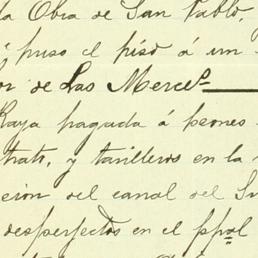 la Obra de San Pablo,
y puso el piso á un
or de Las Merceds
Raya pagada á peones
trato, y tarilleros en la
cion del canal del Su
desperfectos en el ppal